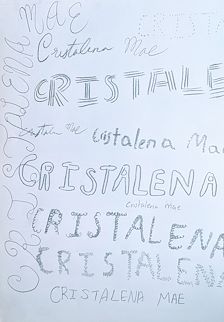 CRISTALENA MAE
CRIST
Cristalena Mae
CRISTALE
Cristalena Mae
Cristalena Mae
CRISTALENA
Cristalena Mae
CRISTALENA
CRISTALENA
CRISTALENA MAE